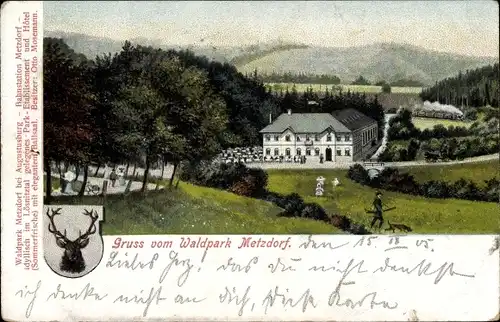 Waldpark Metzdorf bei Augustusburg - Bahnstation Metzdorf -
idyllisch im Lößnitztal gelegenes Park-Etablissement und Hôtel
(Sommerfrische) mit elegantem Ballsaal. Besitzer: Otto Mosemann.
Gruss vom Waldpark Metzdorf. den 15. VIII 05.
Liebes Herz, das du nicht denkst
ich denke nicht an dich, diese Karte